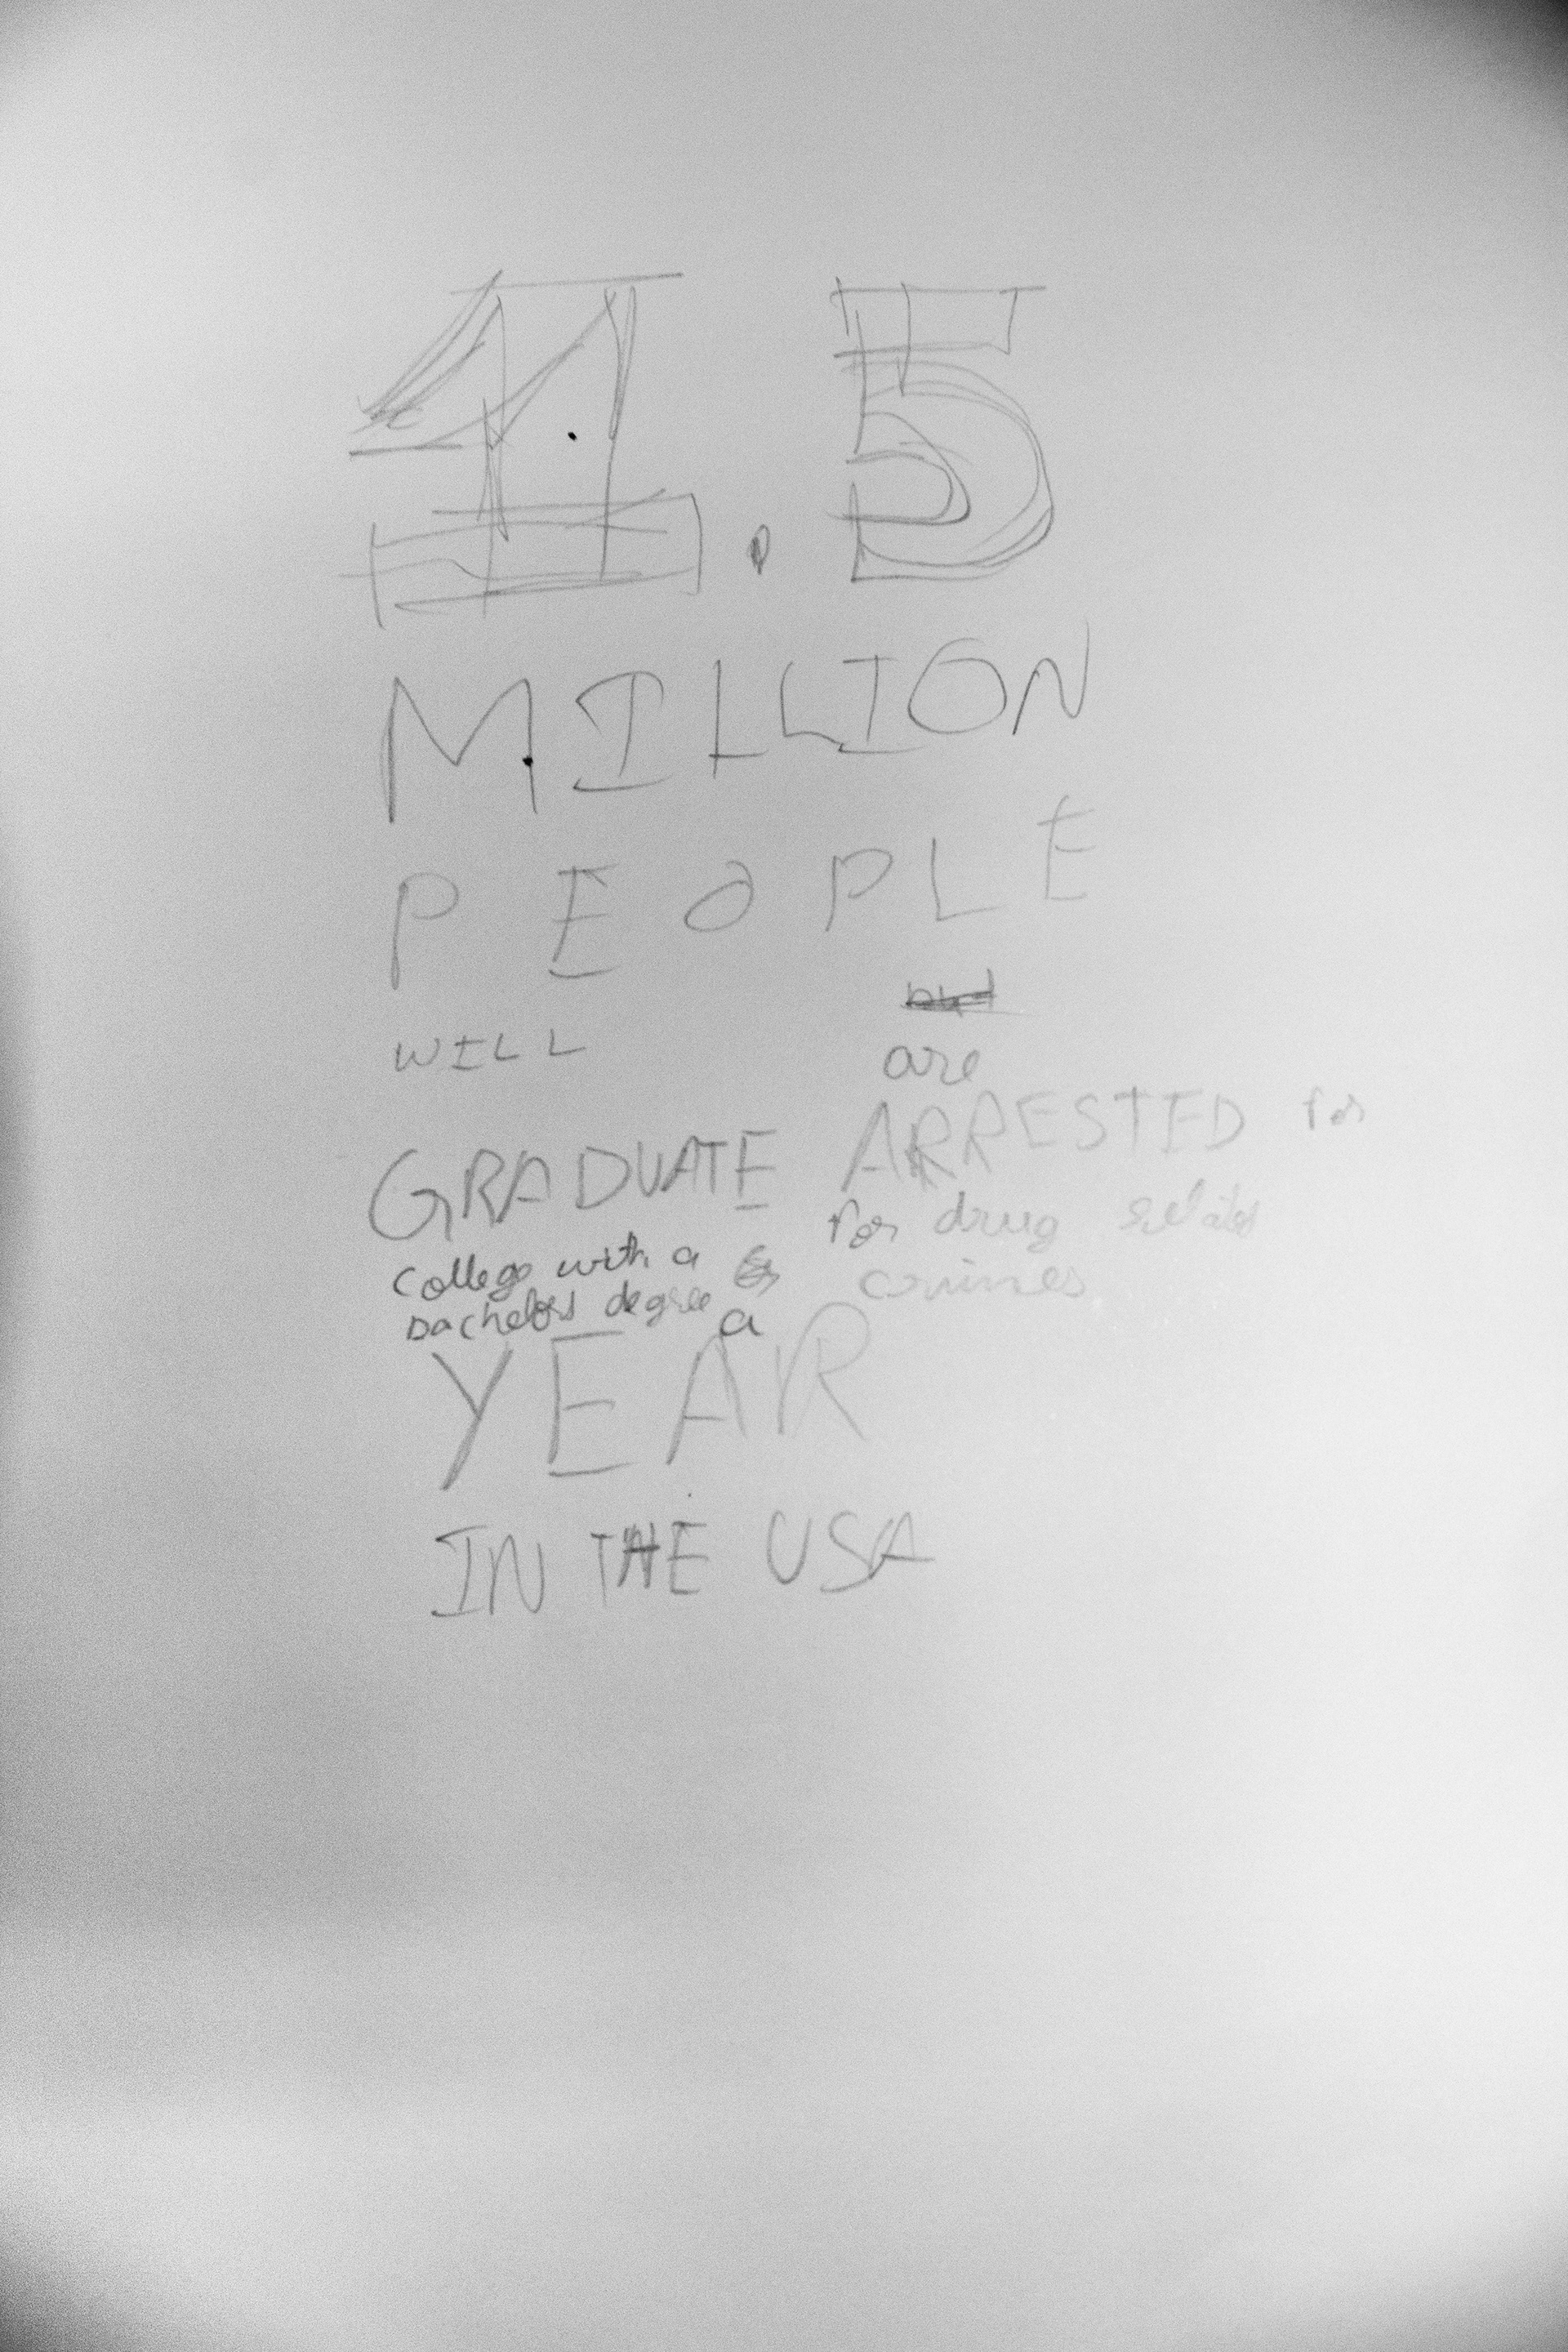 1.5
MILLION
PEOPLE
WILL
are
GRADUATE ARRESTED for
College with a for drug related
bachelors degree crimes
a
YEAR
IN THE USA